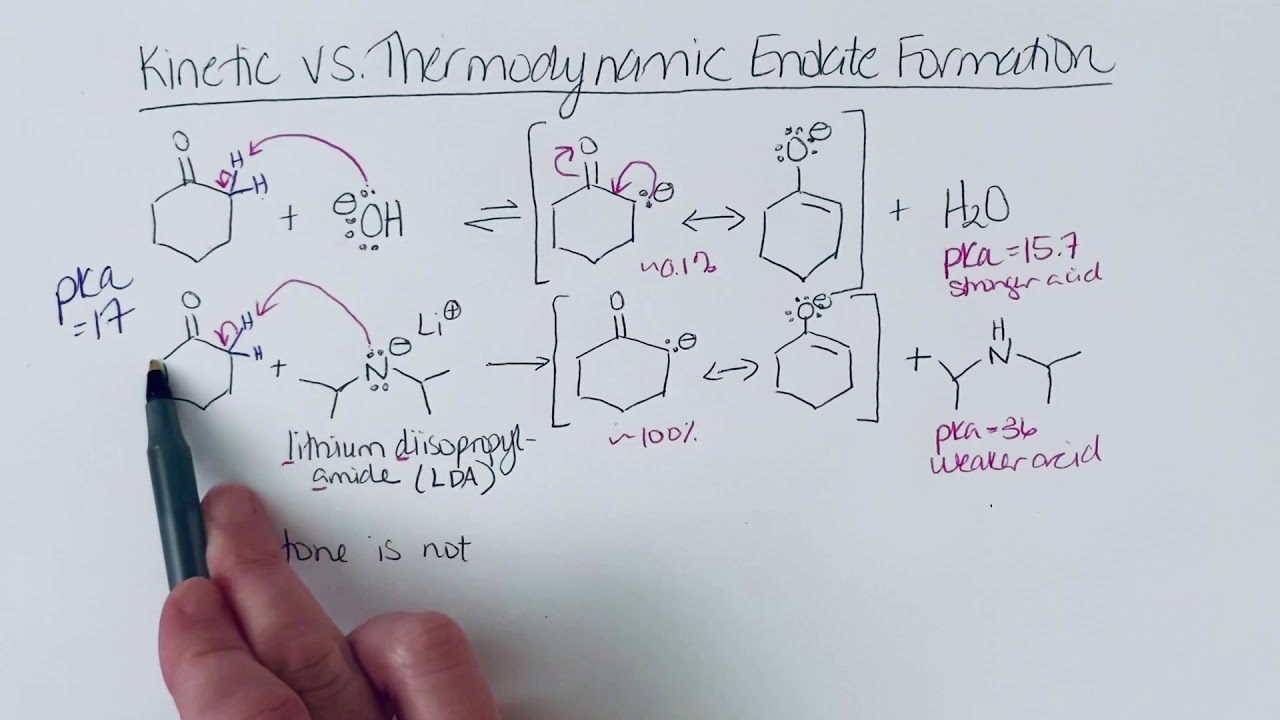 Kinetic vs. Thermodynamic Enolate Formation
O
H
H
+
⊖
OH
⇌
O
⊖
~0.1%
↔
O ⊖
+ H2O
pka = 15.7
stronger acid
pka
= 17
O
H
H
+
N ⊖ Li ⊕
→
O
⊖
~100%
↔
O ⊖
+
H
N
pka = 36
weaker acid
lithium diisopropyl-
amide (LDA)
tone is not